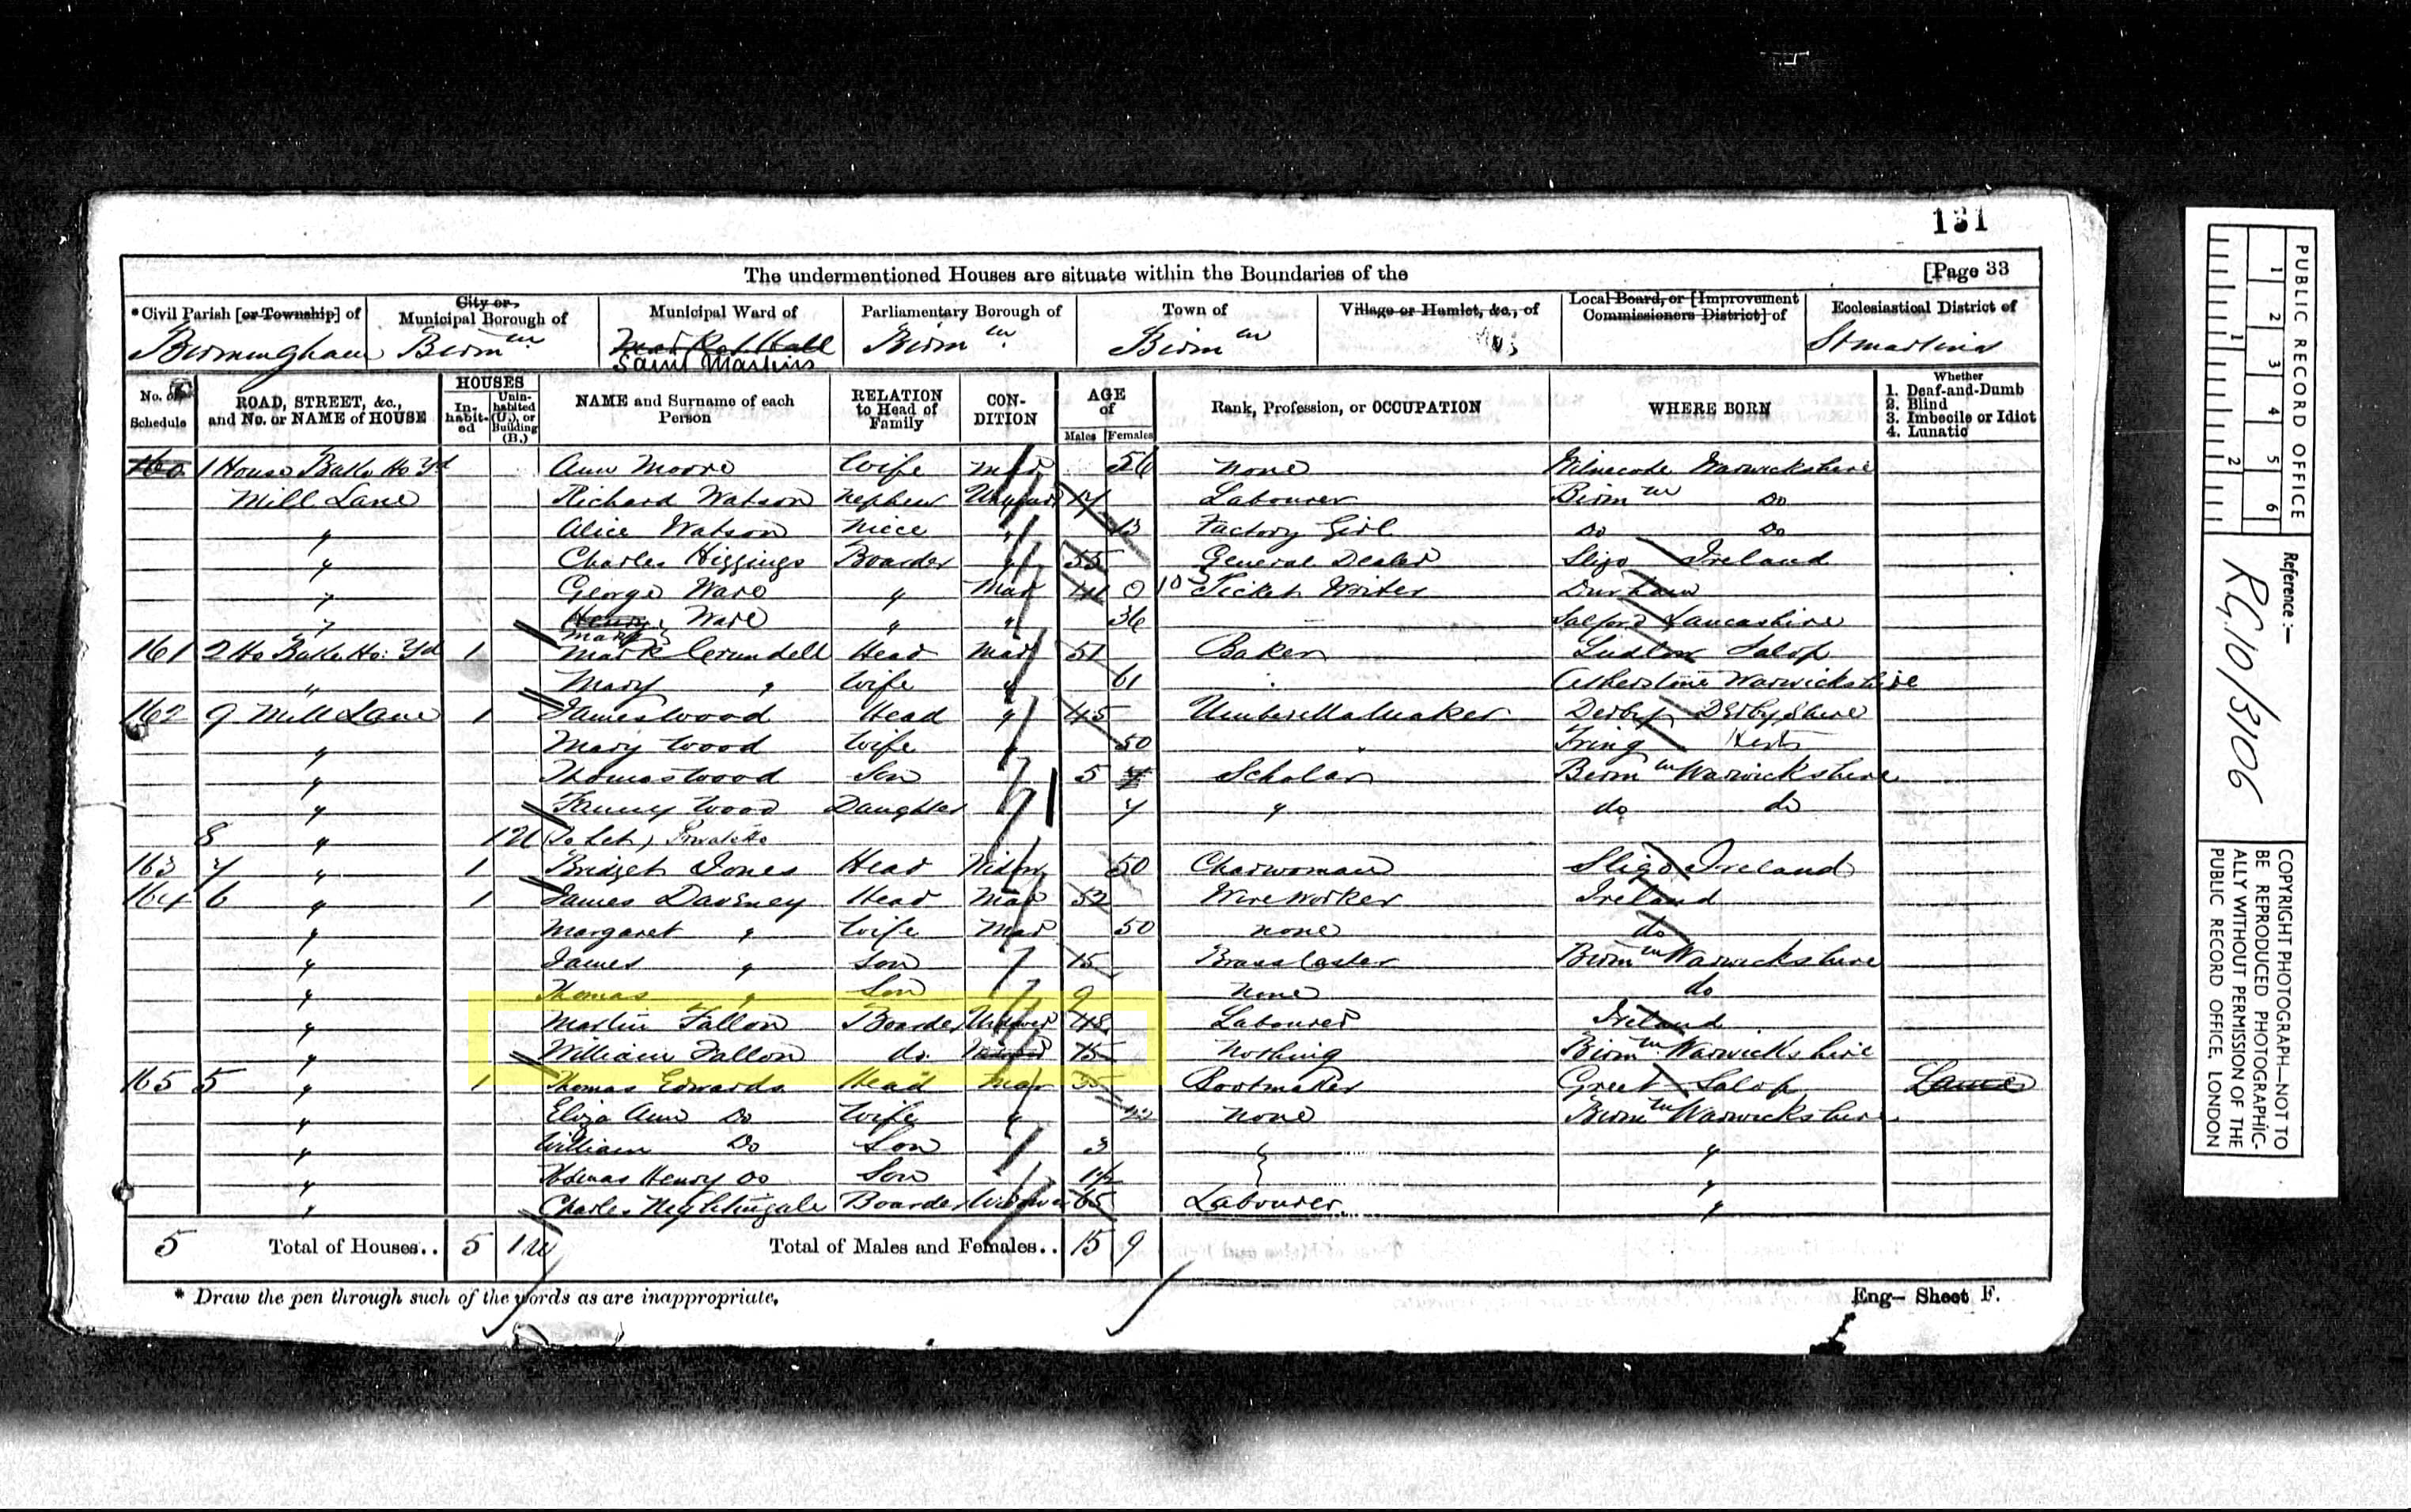 131
The undermentioned Houses are situate within the Boundaries of the [Page 33
*Civil Parish [or Township] of City or Municipal Borough of Municipal Ward of Parliamentary Borough of Town of Village or Hamlet, &c., of Local Board, or [Improvement Commissioners District] of Ecclesiastical District of
Birmingham Birm m Birm m Birm m St martins
Saint Martins
No. of Schedule ROAD, STREET, &c., and No. or NAME of HOUSE HOUSES In-habit-ed Unin-habited (U.), or Building (B.) NAME and Surname of each Person RELATION to Head of Family CON-DITION AGE of Males Females Rank, Profession, or OCCUPATION WHERE BORN Whether 1. Deaf-and-Dumb 2. Blind 3. Imbecile or Idiot 4. Lunatic
160 1 House Bake Ho Yd Ann Moore Wife Mar 56 none Warwickshire
Mill Lane Richard Watson Nephew 17 Labourer Birm m Do
" Alice Watson Niece " 13 Factory Girl Do Do
" Charles Higgings Boarder " 55 General Dealer Sligo Ireland
" George Ware " Mar Ticket Writer Durham
" Henry Mary Ware " " 36 Salford Lancashire
161 2 Ho Bake Ho: Yd 1 Mark Crundell Head Mar 51 Baker Ludlow Salop
" Mary " Wife " 61 Atherstone Warwickshire
162 9 Mill Lane 1 James Wood Head " 45 Umbrella Maker Derby Derbyshire
" Mary Wood Wife " 50 " Tring Herts
" Thomas Wood Son 5 Scholar Birm m Warwickshire
" Fanny Wood Daughter " do do
8 " 1 U (To Let) Private Ho
163 7 " 1 Bridget Jones Head Widow 50 Charwoman Sligo Ireland
164 6 " 1 James Daveney Head Mar 52 Wire Worker Ireland
" Margaret " Wife Mar 50 none do
" James " Son 15 Brass Caster Birm m Warwickshire
" Thomas " Son 9 none do
" Martin Fallon Boarder 48 Labourer Ireland
" William Fallon do 15 nothing Birm m Warwickshire
165 5 " 1 Thomas Edwards Head Mar 35 Bootmaker Greet Salop
" Eliza Ann Do Wife " none Birm m Warwickshire
" William Do Son 3 "
" Thomas Henry Do Son "
" Charles Nightingale Boarder Widower 65 Labourer "
5 Total of Houses.. 5 1 U Total of Males and Females.. 15 9
* Draw the pen through such of the words as are inappropriate.
Eng— Sheet F.
PUBLIC RECORD OFFICE
1 2 3 4 5 6
1 2
Reference:—
RG.10/3106
COPYRIGHT PHOTOGRAPH—NOT TO
BE REPRODUCED PHOTOGRAPHIC-
ALLY WITHOUT PERMISSION OF THE
PUBLIC RECORD OFFICE, LONDON